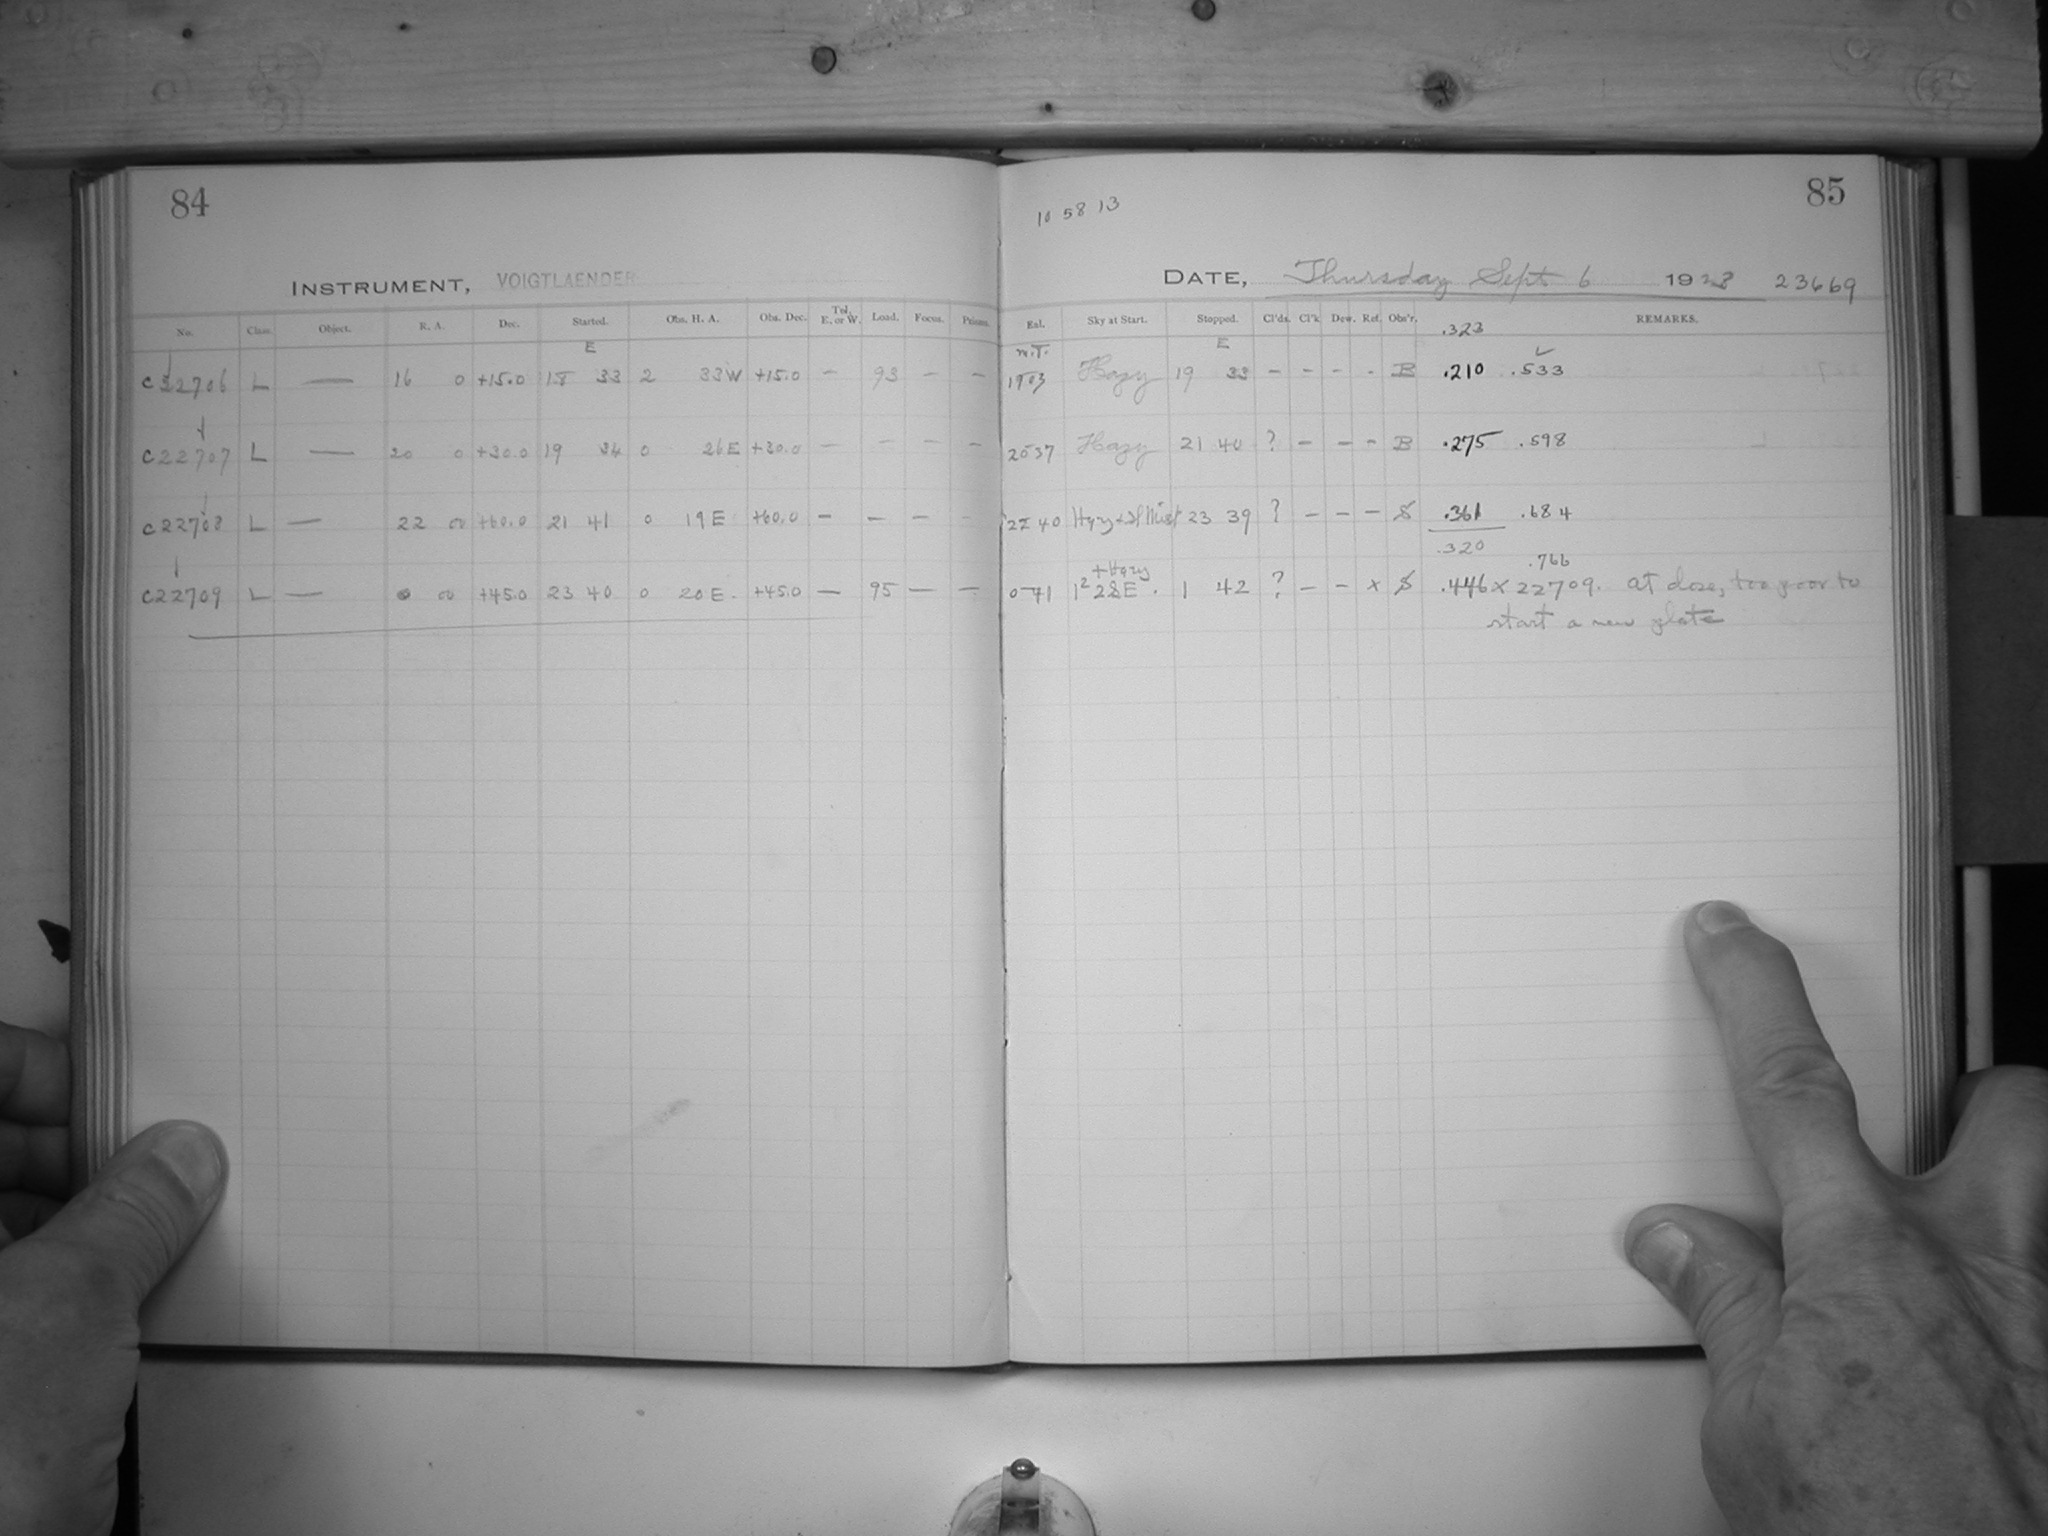 84
85
10 58 13
INSTRUMENT, VOIGTLAENDER
DATE, Thursday Sept 6 1928 23669
No. Class. Object. R. A. Dec. Started. Obs. H. A. Obs. Dec. Tel. E. or W. Load. Focus. Prisms. Eal. Sky at Start. Stopped. Cl'ds. Cl'k Dew. Ref. Obs'r. .323 REMARKS.
E E
C22706 L — 16 0 +15.0 18 33 2 33W +15.0 – 93 – – Hazy 19 33 – – – - B .210 .533
C22707 L — 20 0 +30.0 19 34 0 26E +30.0 – – – – 2037 Hazy 21 40 ? – – - B .275 .598
C22708 L — 22 00 +60.0 21 41 0 19E +60.0 – – – – 2240 Hazy + Sl Mist 23 39 ? – – – S .361 .684
.320
.766
C22709 L — 0 00 +45.0 23 40 0 20E. +45.0 – 95 – – 0 41 + Hazy 1 42 ? – – x S .446 x 22709. at close, too poor to
start a new plate